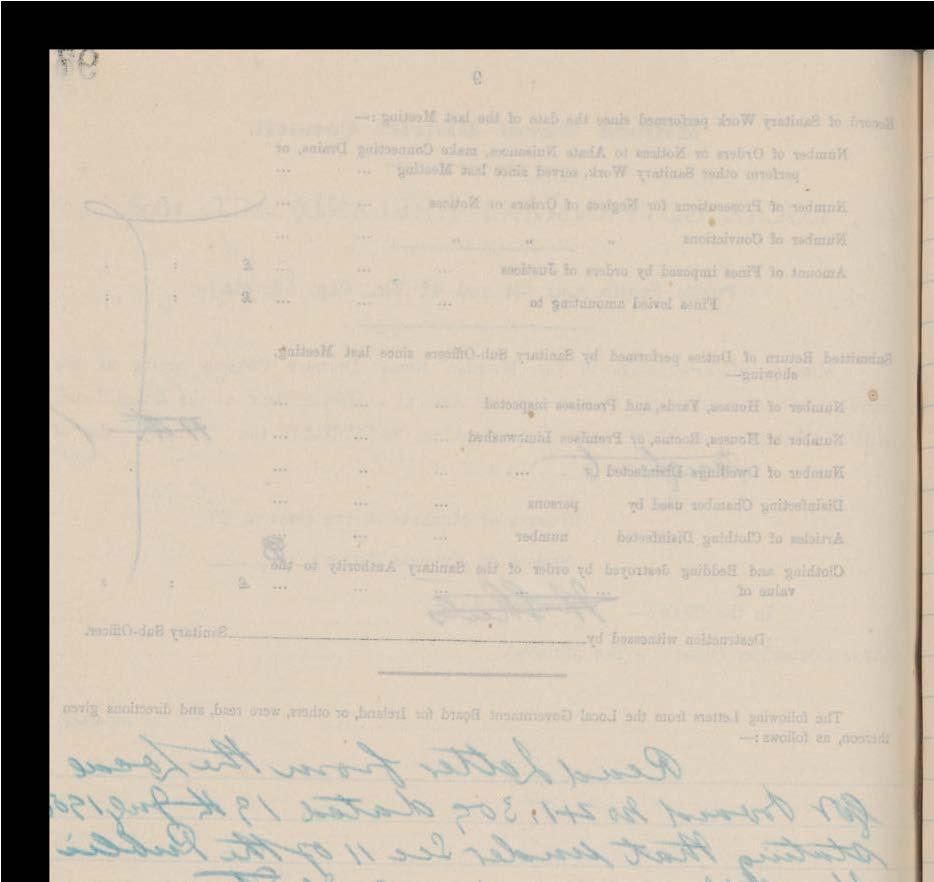 9
Record of Sanitary Work performed since the date of the last Meeting :—
Number of Orders or Notices to Abate Nuisances, make Connecting Drains, or
perform other Sanitary Work, served since last Meeting ... ...
Number of Prosecutions for Neglect of Orders or Notices ... ...
Number of Convictions " " " ... ...
Amount of Fines imposed by orders of Justices ... ... £ : :
Fines levied amounting to ... ... ... £ : :
Submitted Return of Duties performed by Sanitary Sub-Officers since last Meeting,
showing—
Number of Houses, Yards, and Premises inspected ... ... ...
Number of Houses, Rooms, or Premises Limewashed ... ...
Number of Dwellings Disinfected ... ... ... ...
Disinfecting Chamber used by persons ... ... ...
Articles of Clothing Disinfected number ... ...
Clothing and Bedding destroyed by order of the Sanitary Authority to the
value of ... ... ... ... ... £ : :
Destruction witnessed by Sanitary Sub-Officer.
The following Letters from the Local Government Board for Ireland, or others, were read, and directions given
thereon, as follows :—
Read Letter from the Local
Gov Board No 41,305 dated 19th
Stating that under Sec 11 of the Public